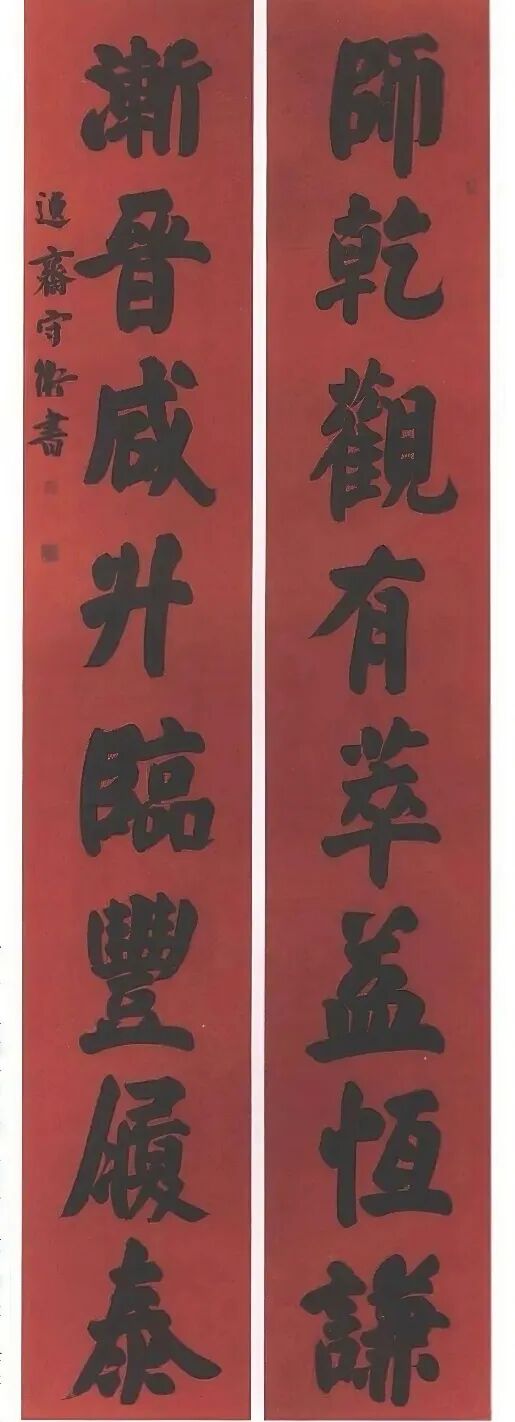 師乾觀有萃益恒謙
漸晉咸升臨豐履泰
齋守衛書